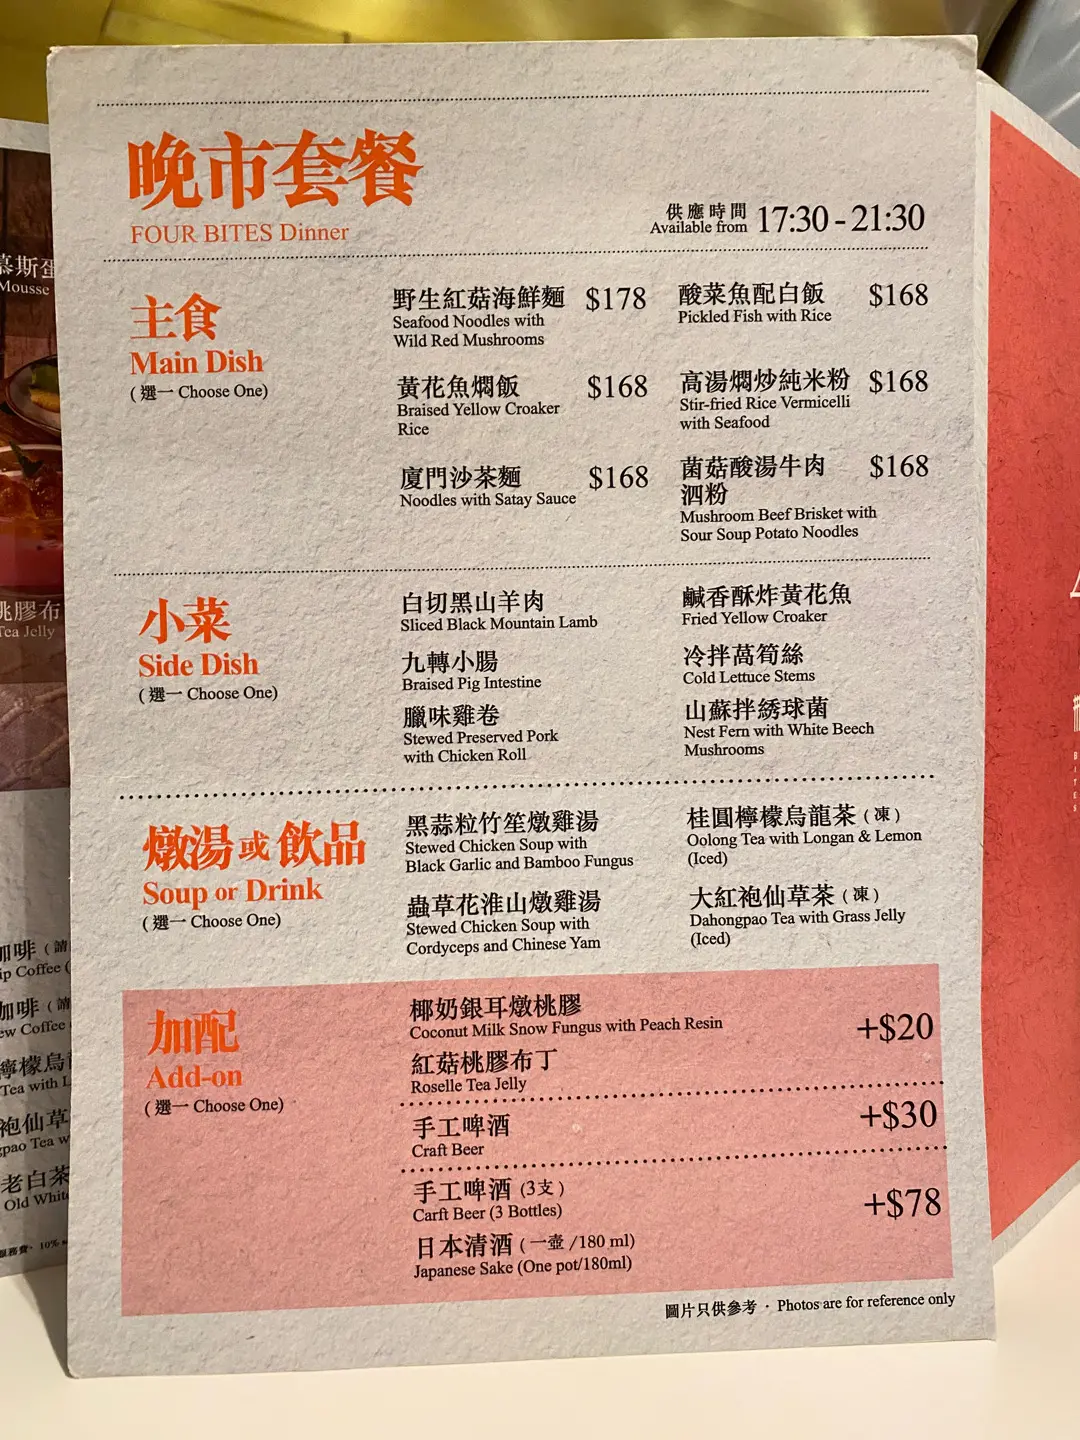 晚市套餐
FOUR BITES Dinner
供應時間
Available from
17:30 - 21:30
主食
Main Dish
( 選一 Choose One)
野生紅菇海鮮麵 $178
Seafood Noodles with
Wild Red Mushrooms
酸菜魚配白飯 $168
Pickled Fish with Rice
黃花魚燜飯 $168
Braised Yellow Croaker
Rice
高湯燜炒純米粉 $168
Stir-fried Rice Vermicelli
with Seafood
廈門沙茶麵 $168
Noodles with Satay Sauce
菌菇酸湯牛肉 $168
泗粉
Mushroom Beef Brisket with
Sour Soup Potato Noodles
小菜
Side Dish
( 選一 Choose One)
白切黑山羊肉
Sliced Black Mountain Lamb
鹹香酥炸黃花魚
Fried Yellow Croaker
九轉小腸
Braised Pig Intestine
冷拌萵筍絲
Cold Lettuce Stems
臘味雞卷
Stewed Preserved Pork
with Chicken Roll
山蘇拌綉球菌
Nest Fern with White Beech
Mushrooms
燉湯或飲品
Soup or Drink
( 選一 Choose One)
黑蒜粒竹笙燉雞湯
Stewed Chicken Soup with
Black Garlic and Bamboo Fungus
桂圓檸檬烏龍茶 ( 凍 )
Oolong Tea with Longan & Lemon
(Iced)
蟲草花淮山燉雞湯
Stewed Chicken Soup with
Cordyceps and Chinese Yam
大紅袍仙草茶 ( 凍 )
Dahongpao Tea with Grass Jelly
(Iced)
加配
Add-on
( 選一 Choose One)
椰奶銀耳燉桃膠
Coconut Milk Snow Fungus with Peach Resin
+$20
紅菇桃膠布丁
Roselle Tea Jelly
手工啤酒
Craft Beer
+$30
手工啤酒 (3支)
Carft Beer (3 Bottles)
+$78
日本清酒 ( 一壺 /180 ml)
Japanese Sake (One pot/180ml)
圖片只供參考 · Photos are for reference only
慕斯蛋
Mousse
桃膠布
Tea Jelly
咖啡 ( 請
ip Coffee (
咖啡 ( 請
ew Coffee
檸檬烏
Tea with L
袍仙草
gpao Tea w
老白茶
Old White
服務費· 10%
BITES